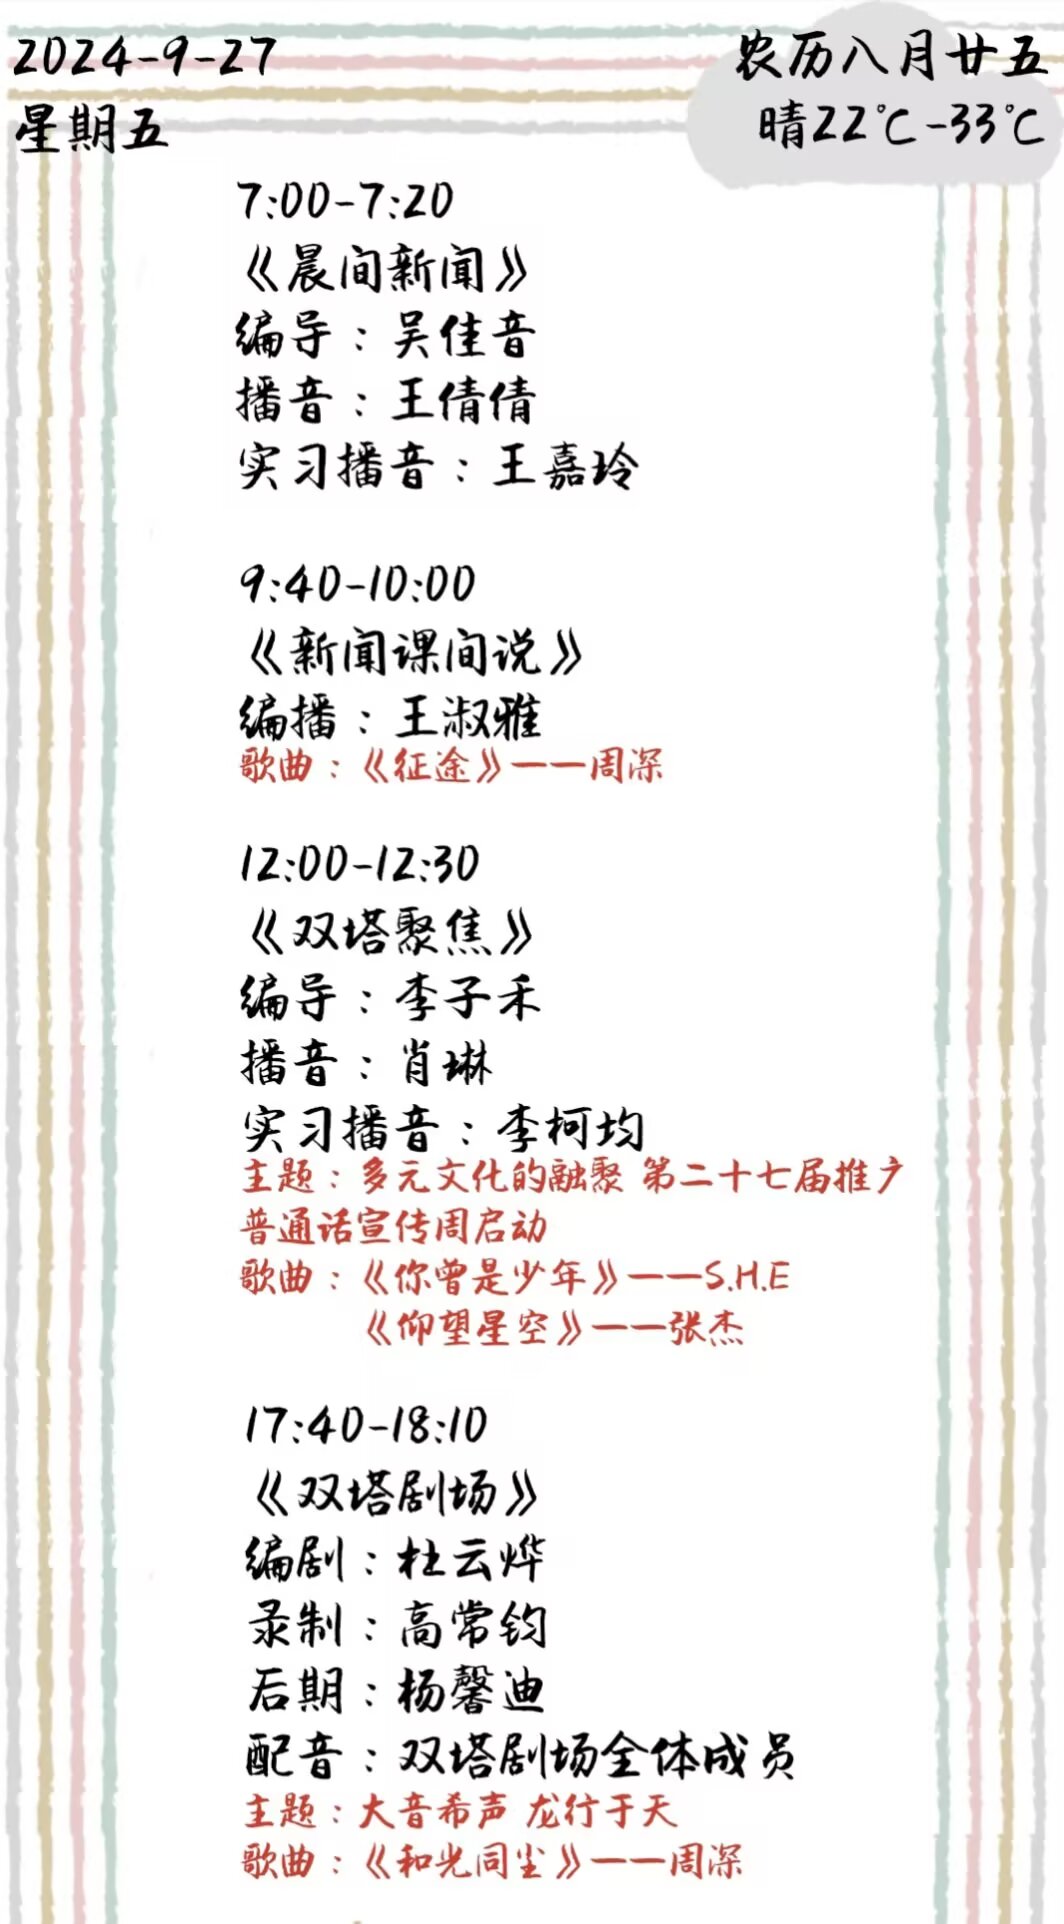 2024-9-27
农历八月廿五
星期五
晴22℃-33℃
7:00-7:20
《晨间新闻》
编导：吴佳音
播音：王倩倩
实习播音：王嘉玲
9:40-10:00
《新闻课间说》
编播：王淑雅
歌曲：《征途》——周深
12:00-12:30
《双塔聚焦》
编导：李子禾
播音：肖琳
实习播音：李柯均
主题：多元文化的融聚 第二十七届推广
普通话宣传周启动
歌曲：《你曾是少年》——S.H.E
《仰望星空》——张杰
17:40-18:10
《双塔剧场》
编剧：杜云烨
录制：高常钧
后期：杨馨迪
配音：双塔剧场全体成员
主题：大音希声 龙行于天
歌曲：《和光同尘》——周深